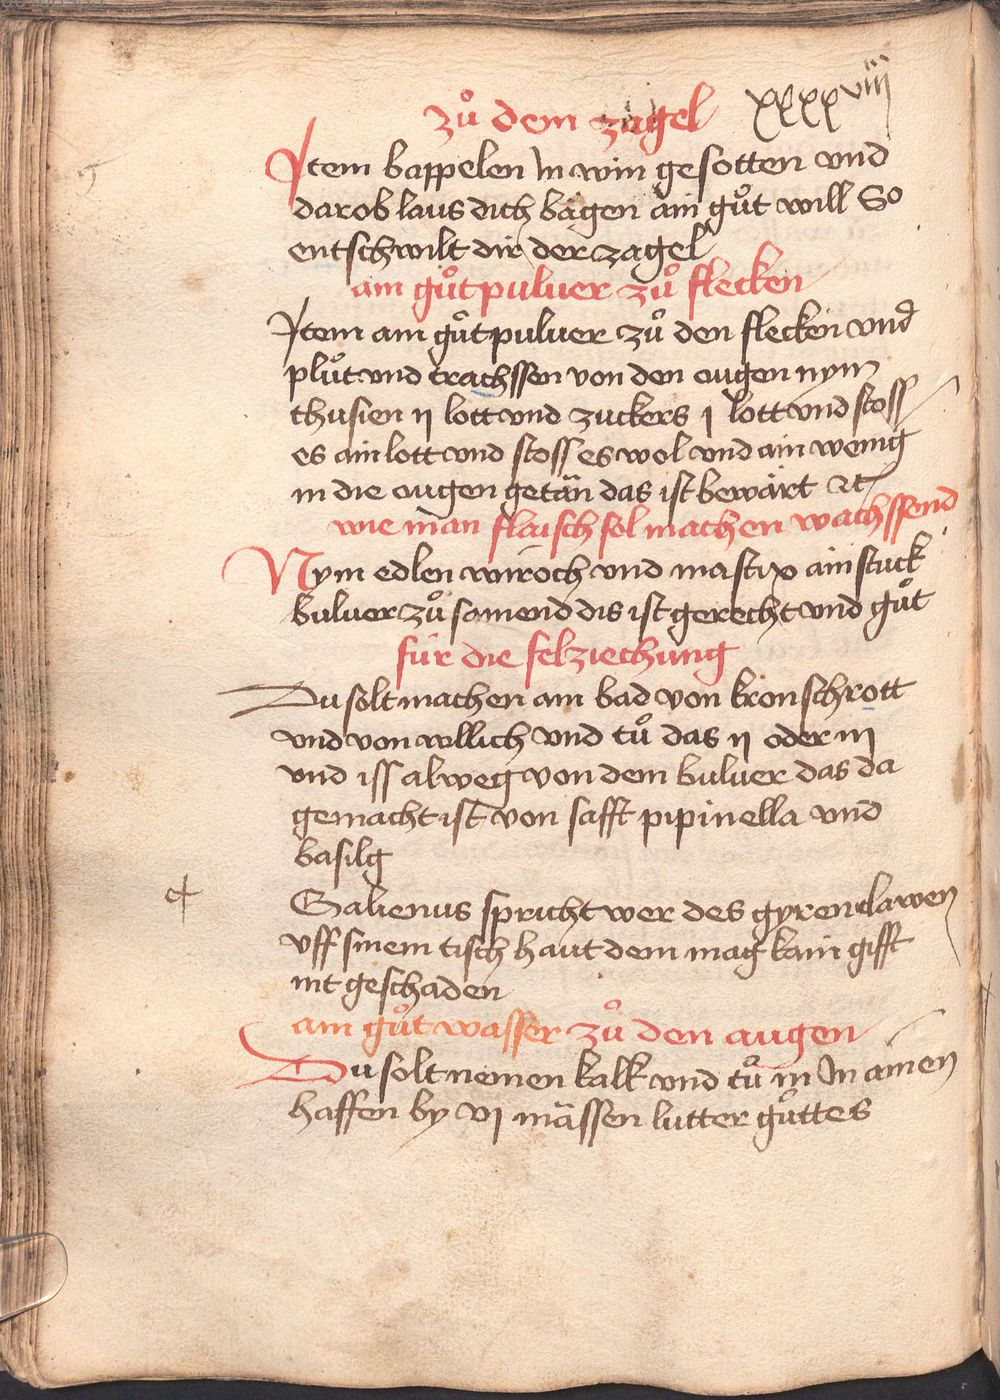 xxxxviij
zuͦ dem zagel
Item bappelen In win gesotten vnd
darob laus dich bägen ain guͦt will So
entschwilt dir der zagel
ain guͦt puluer zuͦ flecken
Item ain guͦt puluer zuͦ den flecken vnd
pluͦt vnd trachssen von den ougen nym
thusien ij lott vnd zuckers j lott vnd stoss
es ain lott vnd stoss es wol vnd ain wenig
in die ougen getän das ist bewärt etc
wie man flaisch sol machen wachssend
Nym edlen wiroch vnd mastix ain stuck
buluer zuͦ samend dis ist gerecht vnd guͦt
für die felziechung
Du solt machen ain bad von kronschrott
vnd von wllich vnd tuͦ das ij oder iij
vnd iss alweg von dem buluer das da
gemacht ist von safft pipinella vnd
basilg
Galienus spricht wer des gyren clawen
vff sinem tisch haut dem mag kain gifft
nit geschaden
ain guͦt wasser zuͦ den augen
Du solt nemen kalk vnd tuͦ in In ainen
haffen by vj mässen lutter guͦttes